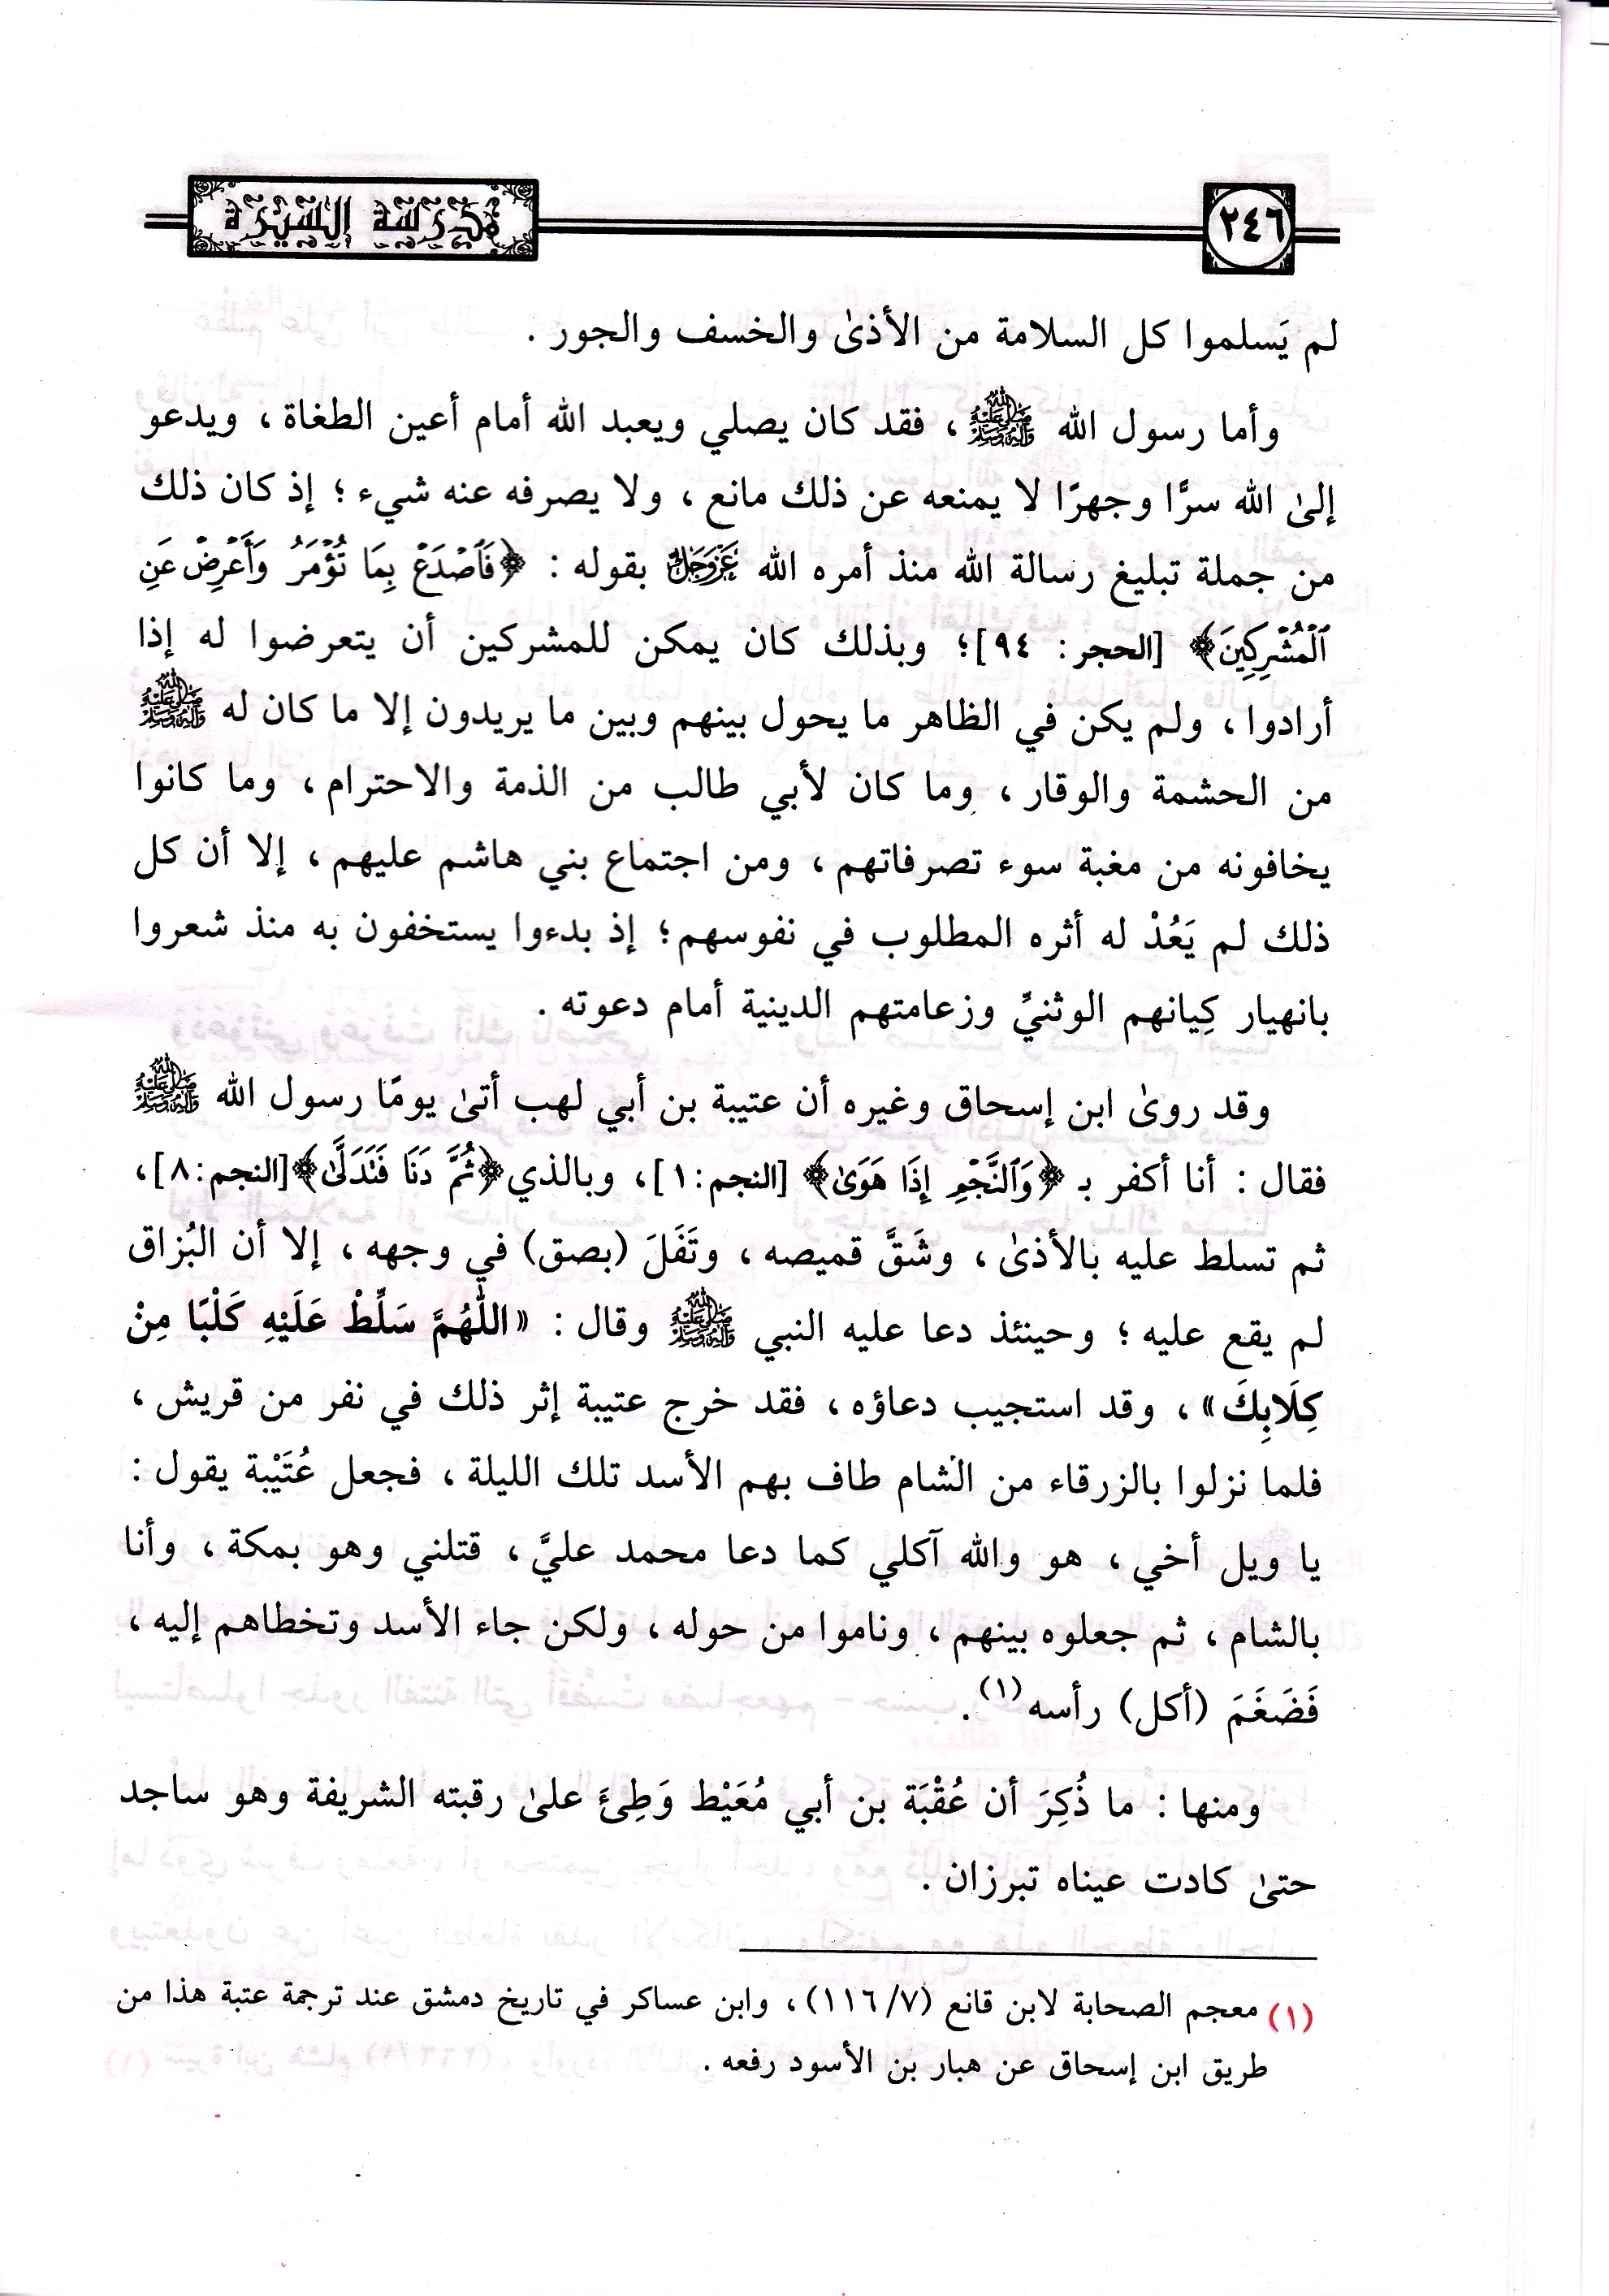 ٢٤٦
مدرسة السيرة
لم يَسلموا كل السلامة من الأذىٰ والخسف والجور .
وأما رسول الله ﷺ ، فقد كان يصلي ويعبد الله أمام أعين الطغاة ، ويدعو
إلىٰ الله سرًّا وجهرًا لا يمنعه عن ذلك مانع ، ولا يصرفه عنه شيء ؛ إذ كان ذلك
من جملة تبليغ رسالة الله منذ أمره الله عَزَّوَجَلَّ بقوله : ﴿فَٱصْدَعْ بِمَا تُؤْمَرُ وَأَعْرِضْ عَنِ
ٱلْمُشْرِكِينَ﴾ [الحجر : ٩٤]؛ وبذلك كان يمكن للمشركين أن يتعرضوا له إذا
أرادوا ، ولم يكن في الظاهر ما يحول بينهم وبين ما يريدون إلا ما كان له ﷺ
من الحشمة والوقار ، وما كان لأبي طالب من الذمة والاحترام ، وما كانوا
يخافونه من مغبة سوء تصرفاتهم ، ومن اجتماع بني هاشم عليهم ، إلا أن كل
ذلك لم يَعُدْ له أثره المطلوب في نفوسهم؛ إذ بدءوا يستخفون به منذ شعروا
بانهيار كِيانهم الوثنيِّ وزعامتهم الدينية أمام دعوته .
وقد روىٰ ابن إسحاق وغيره أن عتيبة بن أبي لهب أتىٰ يومًا رسول الله ﷺ
فقال : أنا أكفر بـ ﴿وَٱلنَّجْمِ إِذَا هَوَىٰ﴾ [النجم:١]، وبالذي ﴿ثُمَّ دَنَا فَتَدَلَّىٰ﴾[النجم:٨]،
ثم تسلط عليه بالأذىٰ ، وشَقَّ قميصه ، وتَفَلَ (بصق) في وجهه ، إلا أن البُزاق
لم يقع عليه ؛ وحينئذ دعا عليه النبي ﷺ وقال : «اللَّهُمَّ سَلِّطْ عَلَيْهِ كَلْبًا مِنْ
كِلَابِكَ» ، وقد استجيب دعاؤه ، فقد خرج عتيبة إثر ذلك في نفر من قريش ،
فلما نزلوا بالزرقاء من الشام طاف بهم الأسد تلك الليلة ، فجعل عُتَيْبة يقول :
يا ويل أخي ، هو والله آكلي كما دعا محمد عليَّ ، قتلني وهو بمكة ، وأنا
بالشام ، ثم جعلوه بينهم ، وناموا من حوله ، ولكن جاء الأسد وتخطاهم إليه ،
فَضَغَمَ (أكل) رأسه(١).
ومنها : ما ذُكِرَ أن عُقْبَة بن أبي مُعَيْط وَطِئَ علىٰ رقبته الشريفة وهو ساجد
حتىٰ كادت عيناه تبرزان .
(١) معجم الصحابة لابن قانع (٧/ ١١٦) ، وابن عساكر في تاريخ دمشق عند ترجمة عتبة هذا من
طريق ابن إسحاق عن هبار بن الأسود رفعه .